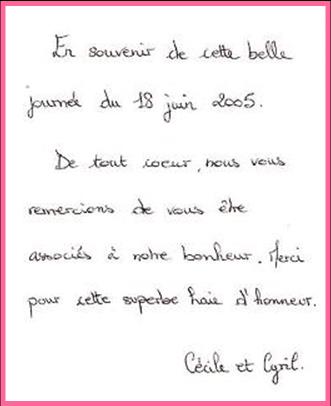 En souvenir de cette belle
journée du 18 juin 2005.
De tout coeur, nous vous
remercions de vous être
associés à notre bonheur. Merci
pour cette superbe haie d'honneur.
Cécile et Cyril.